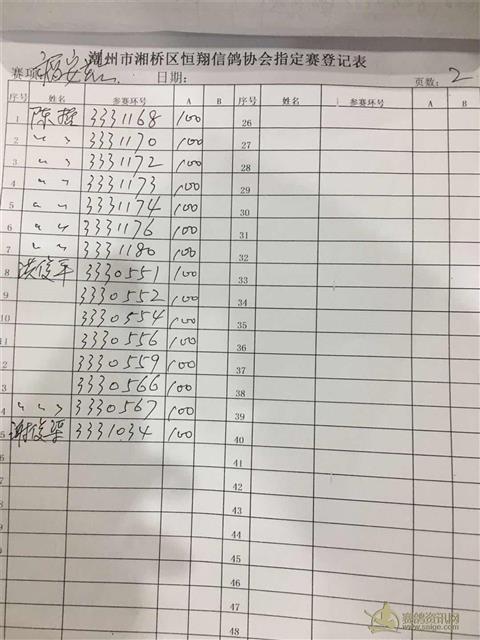 潮州市湘桥区恒翔信鸽协会指定赛登记表
赛项 福安 日期: 页数: 2
序号 姓名 参赛环号 A B 序号 姓名 参赛环号 A B
1 陈 3331168 100 26
2 〃 3331170 100 27
3 〃 3331172 100 28
4 〃 3331173 100 29
5 〃 3331174 100 30
6 〃 3331176 100 31
7 〃 3331180 100 32
8 洪俊平 3330551 100 33
9 3330552 100 34
10 3330554 100 35
11 3330556 100 36
12 3330559 100 37
3 3330566 100 38
4 〃 3330567 100 39
5 谢俊 3331034 100 40
41
42
43
44
45
46
47
48
赛鸽资讯网
www.saige.com